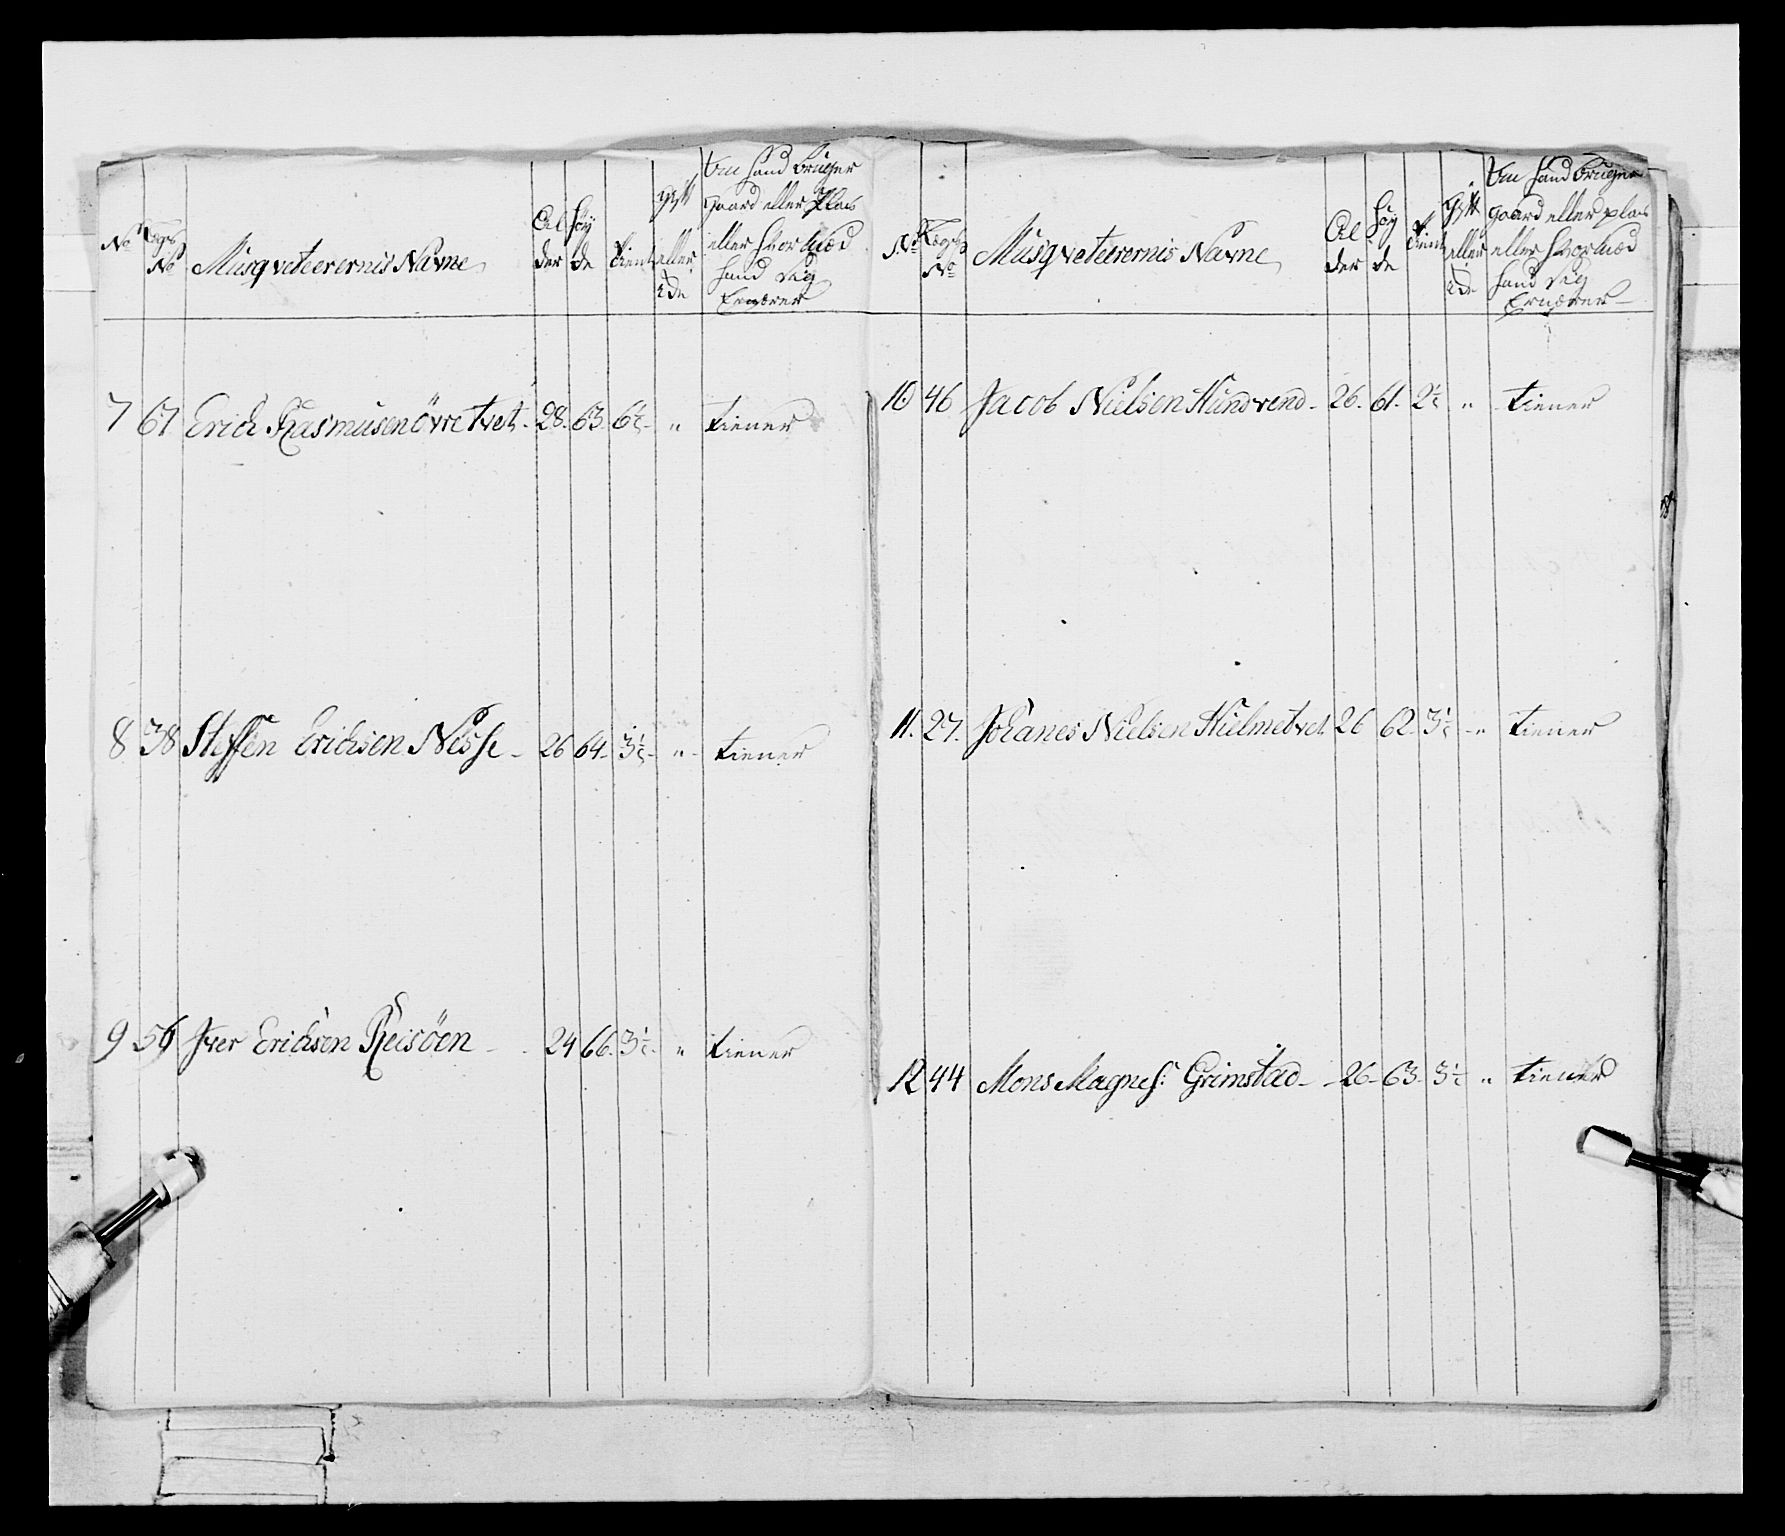 No Legs No Musqveteerernis Navne Al der Høy de Tient gift eller Ede Om hand bruger gaard eller Plas eller hvor med hand sig Ernærer
7 67 Erich Rasmusen övretvet - 28. 63. 6½ - " tiener
8 38 Steffen Erichsen Nesse - 26 64 - 3½ - " - tiener
9 59 Iver Erichsen Reisöen - - 24 66. 3½ - " tiener
No Legs No Musqveteerernis Navne Al der Høy de Tient gift eller Ede Om hand bruger gaard eller plas eller hvor med hand sig Ernærer
10 46 Jacob Nielsen Hundvend - 26. 61. 2½ " tiener
11. 27. Johanes Nielsen Hielmetvet 26 62. 3½ - " tiener
12 44 Mons Magnes: Grimstad - - 26 - 63 - 3½ " tiener